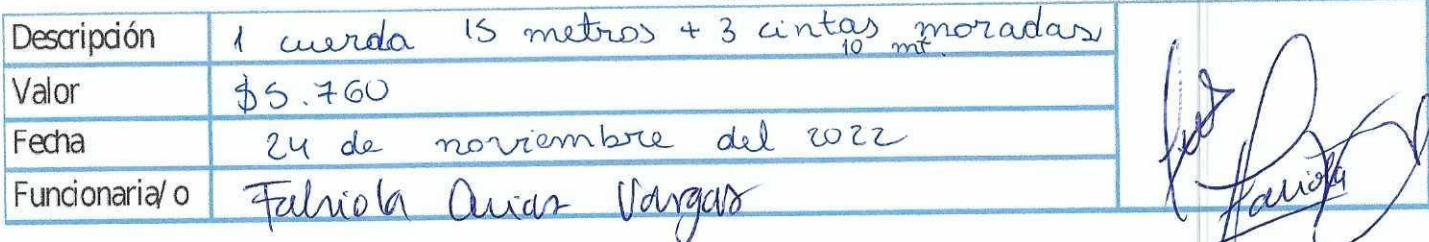 Descripción 1 cuerda 15 metros + 3 cintas moradas
10 mt.
Valor $5.760
Fecha 24 de noviembre del 2022
Funcionaria/o Fabiola Arias Vargas
Fabiola